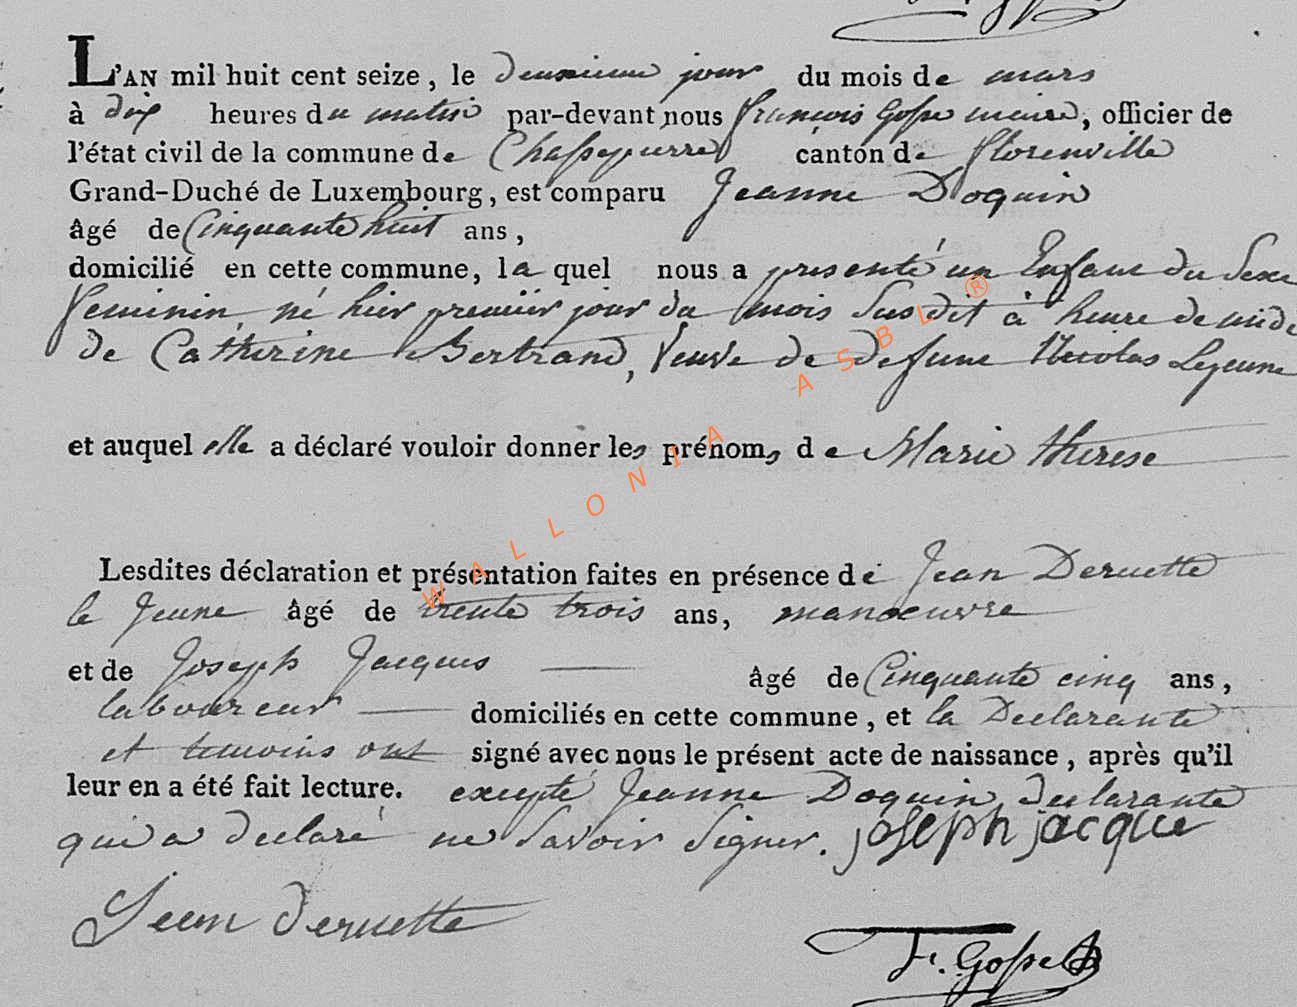 L'AN mil huit cent seize, le deuxieme jour du mois de mars
à dix heures du matin par-devant nous françois Gosse maire, officier de
l'état civil de la commune de Chassepierre canton de florenville
Grand-Duché de Luxembourg, est comparu Jeanne Doquin
âgé de Cinquante huit ans,
domicilié en cette commune, la quel nous a presenté un Enfant du Sexe
feminin, né hier premier jour du mois Susdit à heure de midi
de Catherine Bertrand, Veuve de defunt Nicolas Lejeune
et auquel elle a déclaré vouloir donner les prénoms de Marie therese
Lesdites déclaration et présentation faites en présence de Jean Deruette
le Jeune âgé de trente trois ans, manoeuvre
et de Joseph Jacques âgé de Cinquante cinq ans,
laboureur domiciliés en cette commune, et la Declarante
et temoins ont signé avec nous le présent acte de naissance, après qu'il
leur en a été fait lecture. excepté Jeanne Doquin declarante
qui a declaré ne Savoir Signer. joseph jacque
Jean deruette
F. Gosse
WALLONIA ASBL ®